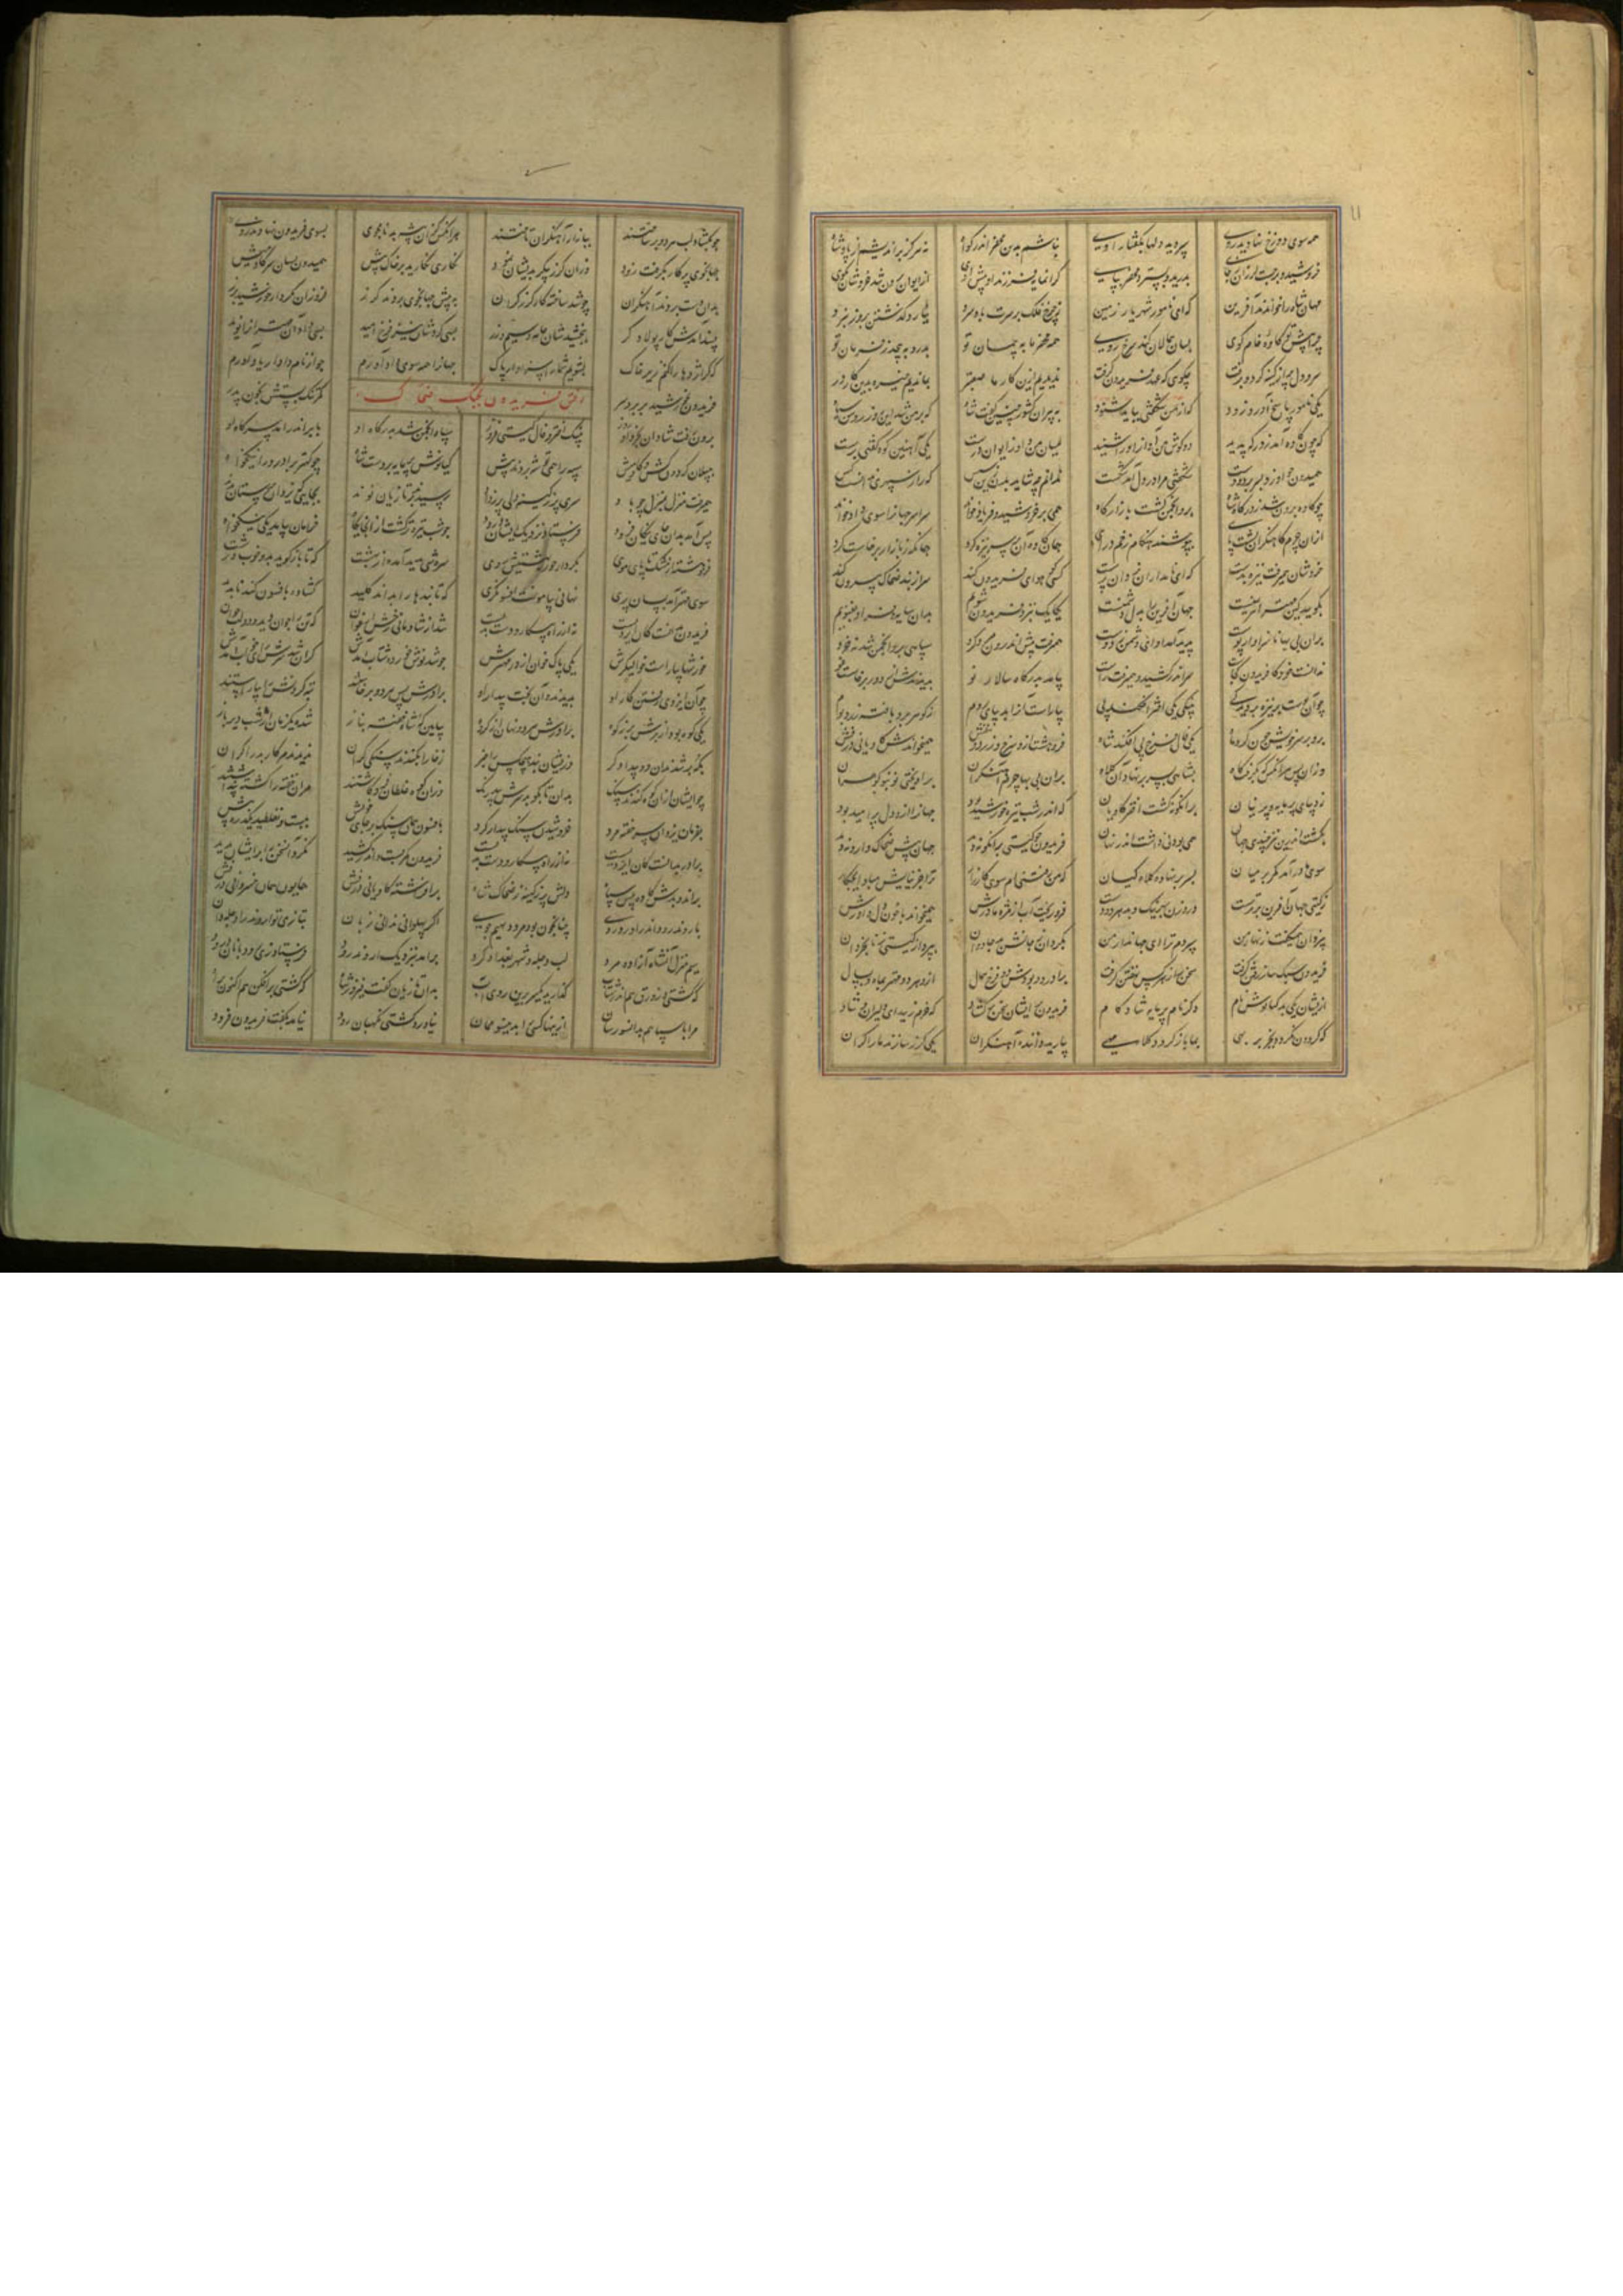 همه سوی دوزخ نهادید روی سپردید دلها بگفتار اوی نباشم بدین محضر اندر گوا نه هرگز براندیشم از پادشا
خروشید و برجست لرزان ز جای بدرید و بسپرد محضر بپای گرانمایه فرزند او پیش اوی از ایوان برون شد خروشان بکوی
مهان شاه را خواندند آفرین که ای نامور شهریار زمین ز چرخ فلک بر سرت باد سرد نیارد گذشتن بروز نبرد
چرا پیش تو کاوهٔ خام گوی بسان همالان کند سرخ روی همه محضر ما به پیمان تو بدرد بپیچد ز فرمان تو
سر و دل پر از کینه کرد و برفت تو گویی که عهد فریدون گرفت ندیدیم ازین کار ما صعبتر بماندیم خیره بدین کار در
یکی نامور پاسخ آورد زود که از من شگفتی بباید شنود به پیران کشور چنین گفت شاه که بر من شد این روز روشن سیاه
که چون کاوه آمد ز درگه پدید دو گوش من آواز او را شنید میان من و او ز ایوان درست یکی آهنین کوه گفتی برست
همیدون چو او زد بسر بر دو دست شگفتی مرا در دل آمد شکست ندانم چه شاید بدن زین سپس که راز سپهری ندانست کس
چو کاوه برون شد ز درگاه شاه برو انجمن گشت بازارگاه همی بر خروشید و فریاد خواند سراسر جهانرا سوی داد خواند
ازان چرم کاهنگران پشت پای بپوشند هنگام زخم درای همان کاوه آن بر سر نیزه کرد همانگه ز بازار برخاست گرد
خروشان همیرفت نیزه بدست که ای نامداران یزدان پرست کسی کو هوای فریدون کند سر از بند ضحاک بیرون کند
بگویید کین مهتر اهرمنست جهان آفرین را بدل دشمنست یکایک بنزد فریدون شویم بدان سایه فر او بغنویم
بدان بی بها ناسزاوار پوست پدید آمد آوای دشمن ز دوست همیرفت پیش اندرون مرد گرد سپاهی برو انجمن شد نه خرد
بدانست خود کافریدون کجاست سر اندر کشید و همیرفت راست بیامد بدرگاه سالار نو بدیدندش از دور برخاست غو
چو آن پوست بر نیزه بر دید کی به نیکی یکی اختر افکند پی بیاراست آنرا بدیبای روم ز گوهر برو بافته زر و بوم
بزد بر سر خویش چون گرد ماه یکی فال فرخ پی افکند شاه فروهشت ازو سرخ و زرد و بنفش همیخواندش کاویانی درفش
وزان پس هر آنکس که بگرفت گاه بشاهی بسر بر نهاد آن کلاه بران بی بها چرم آهنگران برآویختی نو بنو گوهران
ز دیبای پرمایه و پرنیان برانگونه گشت اختر کاویان که اندر شب تیره خورشید بود جهانرا ازو دل پر امید بود
بگشت اندرین نیز چندی جهان همی بودنی داشت اندر نهان فریدون چو گیتی برانگونه دید جهان پیش ضحاک وارونه دید
سوی مادر آمد کمر بر میان بسر بر نهاده کلاه کیان که من رفتنی ام سوی کارزار ترا جز نیایش مباد ایچ کار
ز گیتی جهان آفرین برترست درو زن بهر نیک و بد هر دو دست فرو ریخت آب از مژه مادرش همیخواند با خون دل داورش
بیزدان همیگفت زنهار من سپردم ترا ای جهاندار من بگردان ز جانش بد جاودان بپرداز گیتی ز نابخردان
فریدون سبک ساز رفتن گرفت سخن را ز هر کس نهفتن گرفت برادر دو بودش دو فرخ همال ازو هر دو مهتر بماه و بسال
ازیشان یکی بد کیانوش نام دگر نام پرمایه شادکام فریدون بر ایشان سخن برگشاد که خرم زیید ای دلیران و شاد
که گردون نگردد بجز بر بهی بما باز گردد کلاه مهی بیارید داننده آهنگران یکی گرز سازند ما را گران
چو بگشاد لب هر دو برخاستند ببازار آهنگران تاختند هر آنکس کزان پیشه بد نامجوی بسوی فریدون نهادند روی
جهانجوی پرگار بگرفت زود وزان گرز پیکر بدیشان نمود نگاری نگارید بر خاک پیش همیدون بسان سر گاومیش
بدان دست بردند آهنگران چو شد ساخته کار گرز گران به پیش جهانجوی بردند گرز فروزان بکردار خورشید برز
پسند آمدش کار پولادگر ببخشیدشان جامه و سیم و زر بسی کردشان نیز فرخ امید بسی داد آن مهترانرا نوید
که گر اژدها را کنم زیر خاک بشویم شما را سر از گرد پاک جهانرا همه سوی داد آورم چو از نام دادار یاد آورم
رفتن فریدون بجنگ ضحاک
فریدون بخورشید بر برد سر کمر تنگ بستش بخون پدر
برون رفت شادان بخرداد روز به نیک اختر و فال گیتی فروز سپاه انجمن شد بدرگاه او بابر اندر آمد سر گاه او
بپیلان گردون کش و گاومیش سپه را همی توشه بردند پیش کیانوش و پرمایه بر دست شاه چو کهتر برادر ورا نیکخواه
همیرفت منزل بمنزل چو باد سری پر ز کینه دلی پر ز داد رسیدند بر تازیان نوند بجایی که یزدان پرستان بدند
پس آمد بدان جای نیکان فرود فرستاد نزدیک ایشان درود چو شب تیره تر گشت از آن جایگاه خرامان بیامد یکی نیکخواه
فروهشته از مشک تا پای موی بکردار حور بهشتیش روی سروشی بدی آمده از بهشت که تا باز گوید بدو خوب و زشت
سوی مهتر آمد بسان پری نهانی بیاموخت افسونگری که تا بندها را بداند کلید گشاده بافسون کند ناپدید
فریدون بدانست کان ایزدیست نه از راه پیکار و دست بدیست شد از شادمانی رخش ارغوان که تن را جوان دید و دولت جوان
خورشها بیاراست خوالیگرش یکی پاک خوان از در مهترش چو شد نوش خورده شتاب آمدش گران شد سرش رای خواب آمدش
چو آن ایزدی رفتن کار او بدیدند و آن بخت بیدار او برادرش بس هر دو برخاستند تبه کردنش را بیاراستند
یکی کوه بود از برش برز کوه برادرش هر دو نهان از گروه بپایین که شاه خفته بناز شده یک زمان از شب دیرباز
بکه بر شدند آن دو بیدادگر وزیشان نبد هیچکس را خبر ز خارا بکندند سنگی گران ندیدند مر کار بد را کران
چو ایشان ازان کوه کندند سنگ بدان تا بکوبد سرش بیدرنگ وزان کوه غلطان فرو گاشتند مران خفته را کشته پنداشتند
بفرمان یزدان سر خفته مرد خروشیدن سنگ بیدار کرد بافسون همان سنگ بر جای خویش ببست و نغلطید یک ذره پیش
برادر بدانست کان ایزدیست نه از راه پیکار و دست بدیست فریدون کمر بست و اندر کشید نکرد آن سخن را بر ایشان پدید
براند و بدش کاوه پیش سپاه دلش پر ز کینه ز ضحاک شاه برافراشته کاویانی درفش همایون همان خسروانی درفش
باروند رود اندر آورد روی چنان چون بود مرد دیهیم جوی اگر پهلوانی ندانی زبان بتازی تو اروند را دجله دان
سیم منزل آنشاه آزاد مرد لب دجله و شهر بغداد کرد چو آمد بنزدیک اروند رود فرستاد زی رودبانان درود
که کشتی و زورق هم اندر شتاب گذارید یکسر برین روی آب بدان تازیان گفت پیروز شاه که کشتی برافکن هم اکنون براه
مرا با سپاهم بدانسو رسان ازینها کسی را بدینسو ممان نیاورد کشتی نگهبان رود نیامد بگفت فریدون فرود